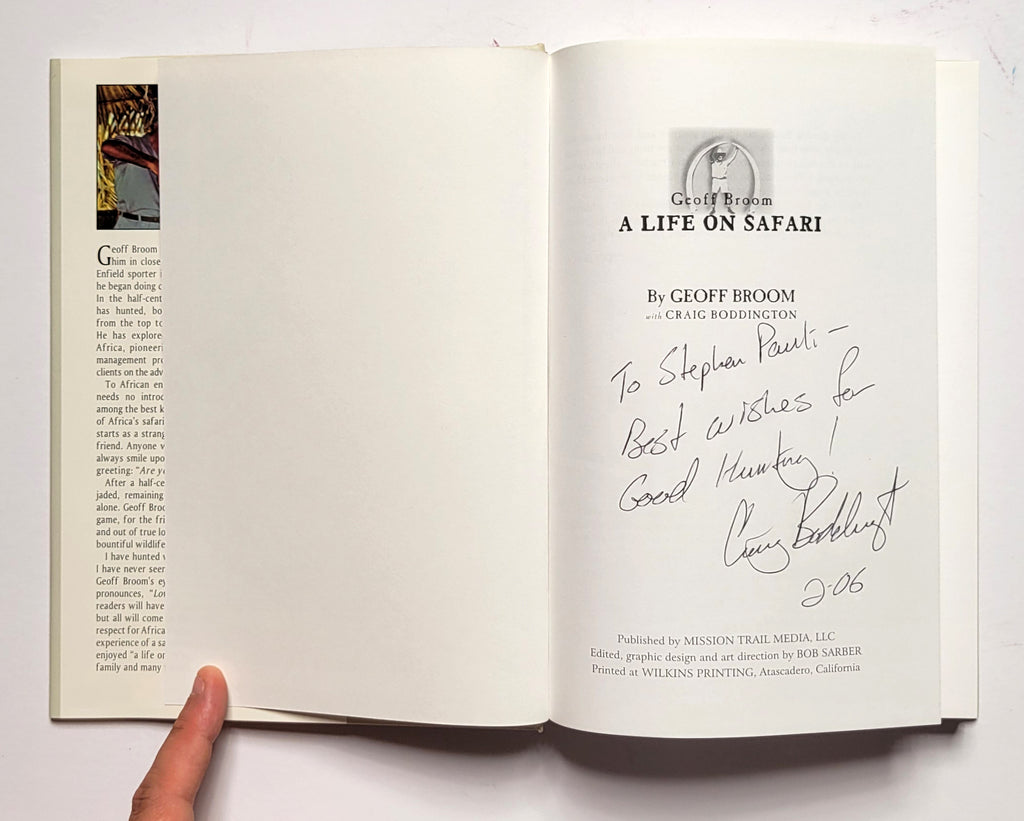 Geoff Broom
him in close
Enfield sporter
he began doing
In the half-cent
has hunted, bo
from the top to
He has explore
Africa, pioneeri
management pro
clients on the adv
To African en
needs no introd
among the best k
of Africa's safari
starts as a strang
friend. Anyone w
always smile upo
greeting: "Are yo
After a half-ce
jaded, remaining
alone. Geoff Broo
game, for the fri
and out of true lo
bountiful wildlife
I have hunted
I have never seen
Geoff Broom's ey
pronounces, "Lo
readers will have
but all will come
respect for Africa
experience of a sa
enjoyed "a life on
family and many
Geoff Broom
A LIFE ON SAFARI
By GEOFF BROOM
with CRAIG BODDINGTON
To Stephen Pauli –
Best wishes for
Good Hunting!
Craig Boddington
2-06
Published by MISSION TRAIL MEDIA, LLC
Edited, graphic design and art direction by BOB SARBER
Printed at WILKINS PRINTING, Atascadero, California